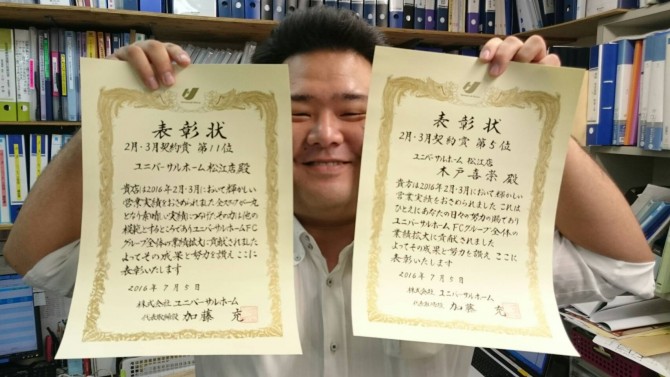 表彰状
2月・3月契約賞 第11位
ユニバーサルホーム 松江店 殿
貴店は2016年2月・3月において輝かしい
営業実績をおさめられました 全スタッフが一丸
となり素晴しい実績に
模範とするところでありユニバーサルホームFC
グループ全体の業績拡大に貢献されました
よってその成果と努力を讃え ここに
表彰いたします
2016年7月5日
株式会社 ユニバーサルホーム
代表取締役 加藤 充
表彰状
2月・3月契約賞 第5位
ユニバーサルホーム 松江店
木戸喜崇 殿
貴方は2016年2月・3月において輝かしい
営業実績をおさめられました これは
ひとえにあなたの日々の努力の賜であり
ユニバーサルホームFCグループ全体の
業績拡大に貢献されました
よってその成果と努力を讃え ここに
表彰いたします
2016年7月5日
株式会社 ユニバーサルホーム
代表取締役 加藤 充